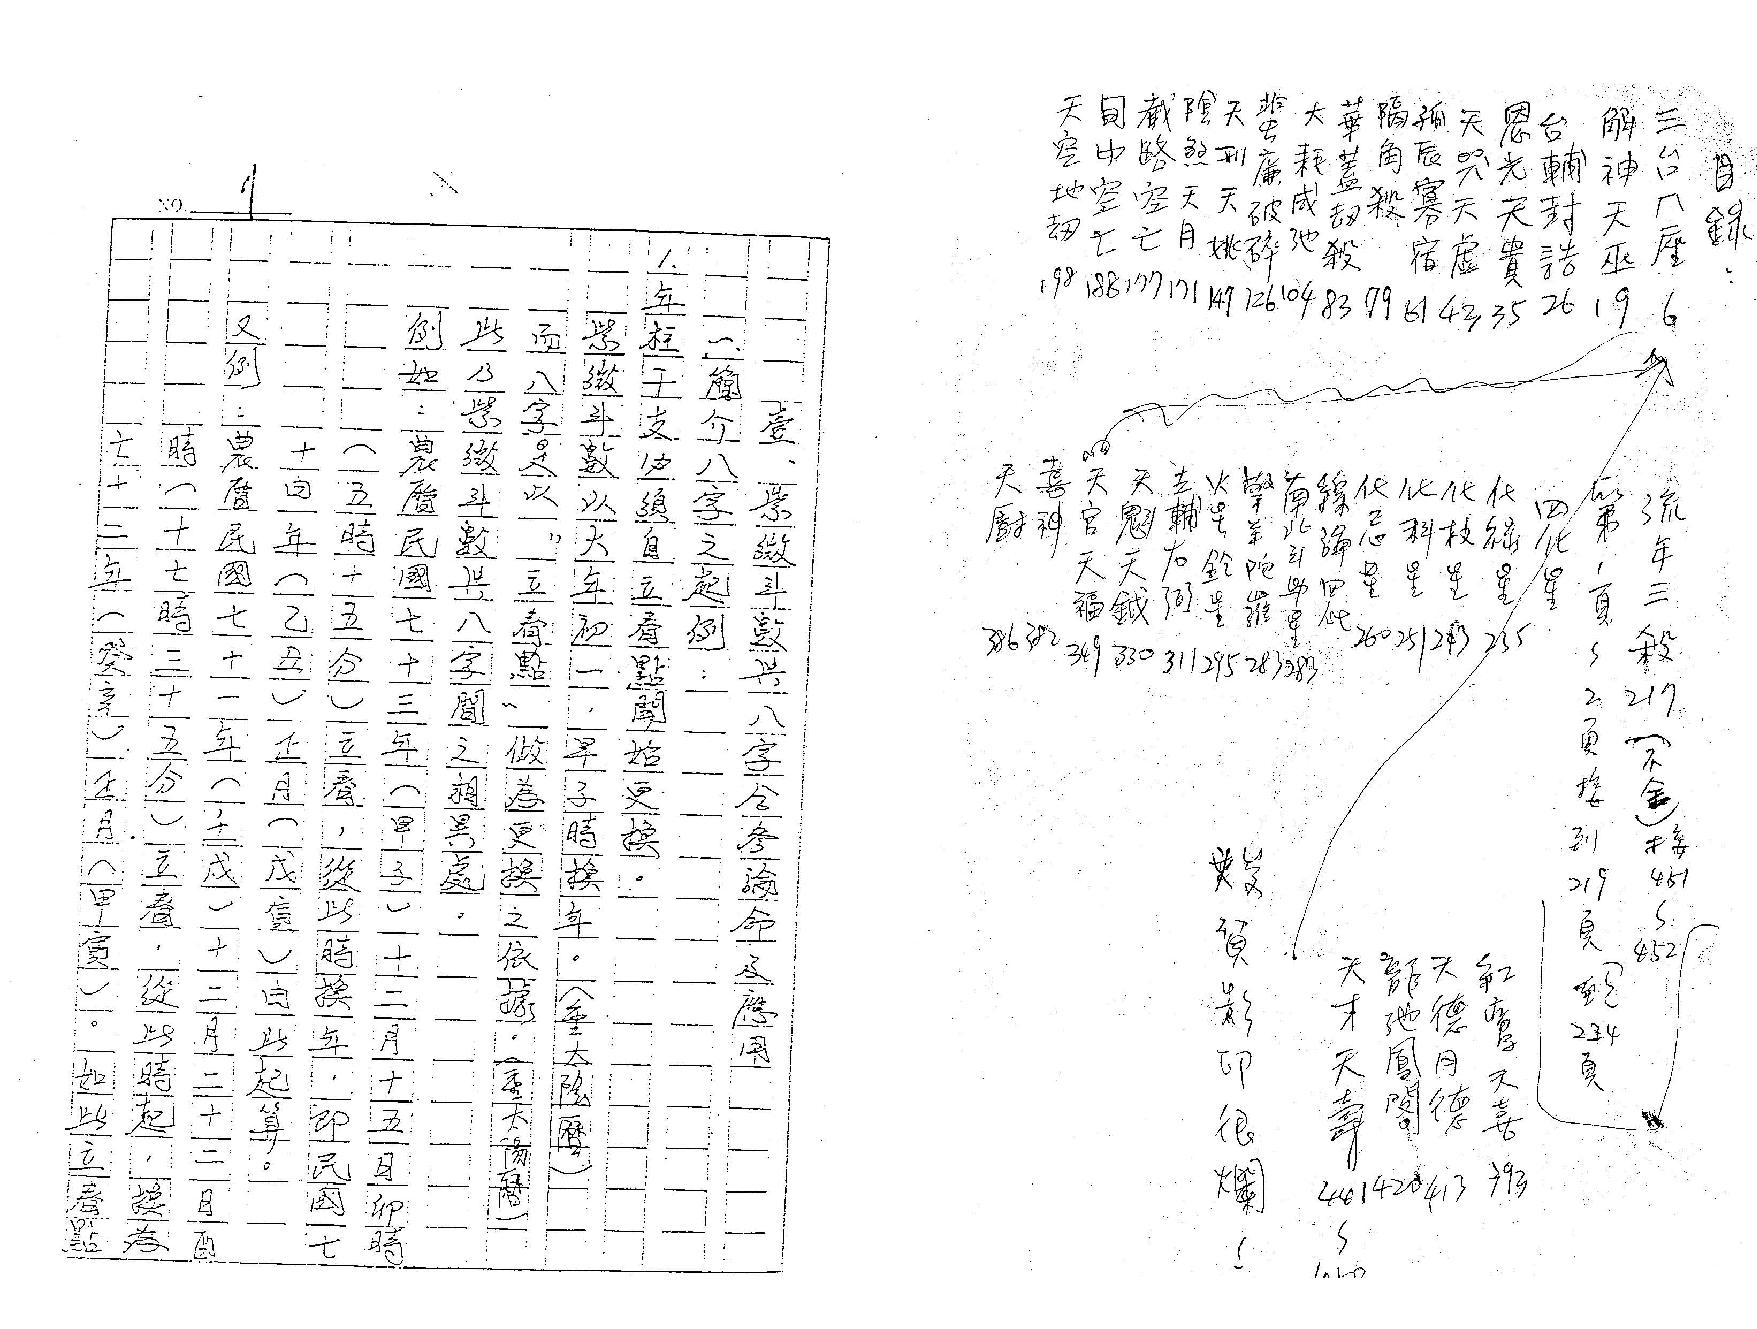 目錄：
三台八座 6
解神天巫 19
台輔封誥 26
恩光天貴 35
天哭天虛 43
孤辰寡宿 61
隔角殺 79
華蓋劫殺 83
大耗咸池 104
蜚廉破碎 126
天刑天姚 147
陰煞天月 171
截路空亡 177
旬中空亡 188
天空地劫 198
流年三殺 217 (不全) 接 451 ~ 452
第1頁~2頁接到219頁 234頁
四化星
化祿星 235
化权星 243
化科星 251
化忌星 260
綜論四化
南北斗助星 283
擎羊陀羅 283
火星鈴星 295
左輔右弼 311
天魁天鉞 330
天官天福 349
喜神 382
天廚 386
紅鸞天喜 393
天德月德 413
龍池鳳閣 428
天才天壽 441 ~
頁影印很爛！
NO. 1
壹、紫微斗數與八字合參論命及應用
一、簡介八字之起例：
1.年柱干支必須自立春點開始更換。
紫微斗數以大年初一，早子時換年。（重太陰曆）
而八字是以"立春點"做為更換之依據。（重太陽曆）
此乃紫微斗數與八字間之相異處。
例如：農曆民國七十三年（甲子）十二月十五日卯時
（五時十五分）立春，從此時換年，即民國七
十四年（乙丑）正月（戊寅）由此起算。
又例：農曆民國七十一年（壬戌）十二月二十二日酉
時（十七時三十五分）立春，從此時起，換為
七十二年（癸亥）正月（甲寅）。如此立春點